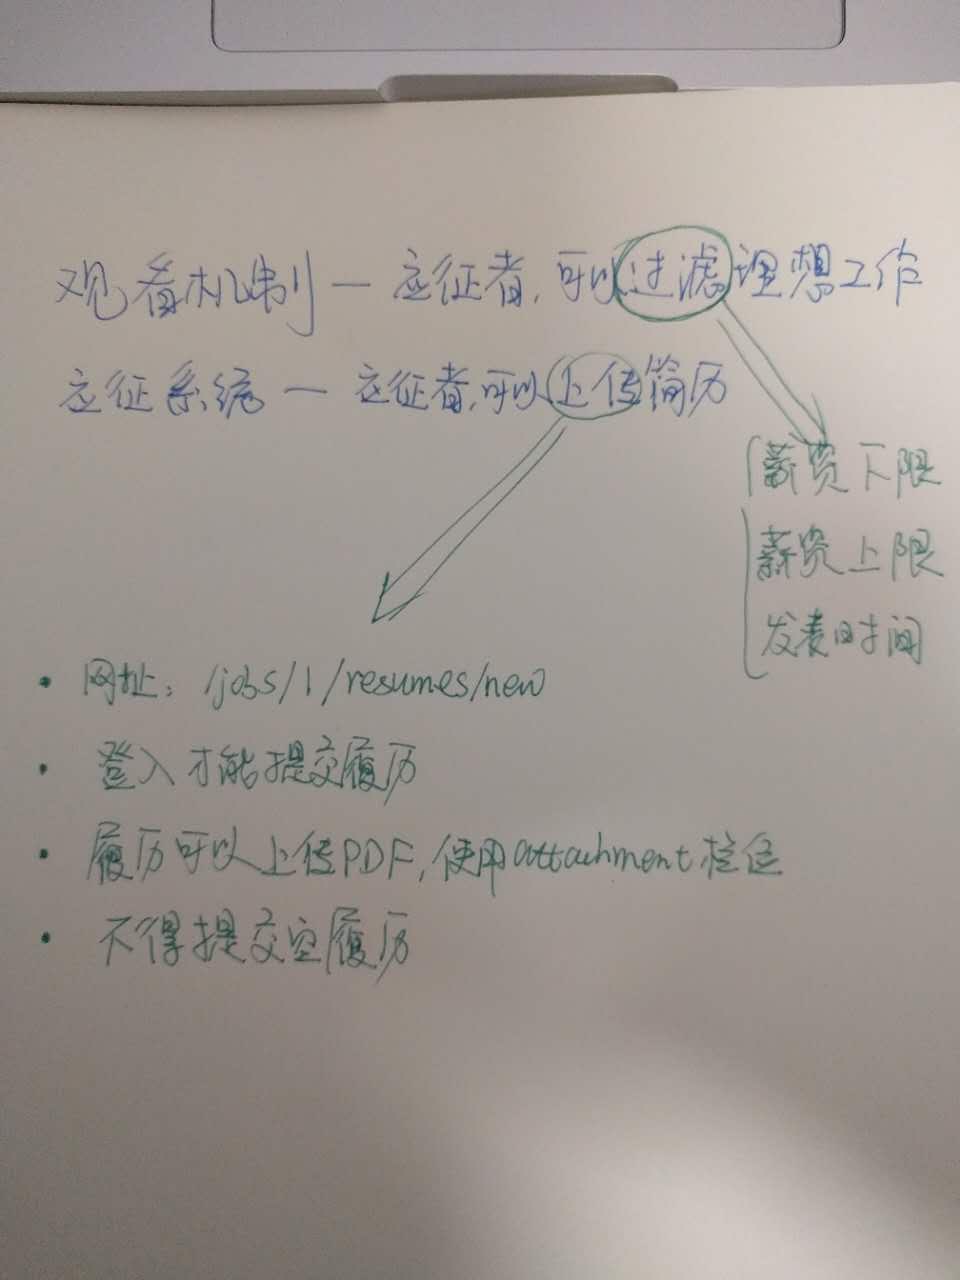 观看机制一应征者,可以过滤理想工作
应征系统一应征者,可以上传简历
薪资下限
薪资上限
发表时间
· 网址: /jobs/1/resumes/new
· 登入才能提交履历
· 履历可以上传PDF,使用attachment栏位
· 不得提交空履历